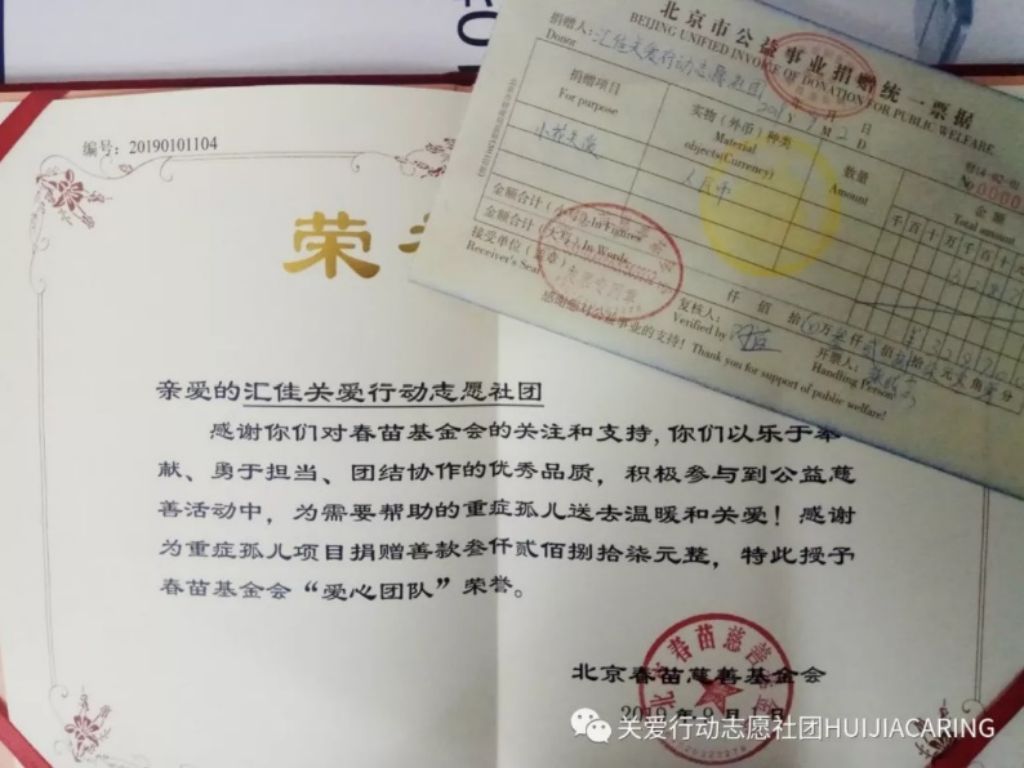 编号：20190101104
荣
亲爱的汇佳关爱行动志愿社团
感谢你们对春苗基金会的关注和支持，你们以乐于奉
献、勇于担当、团结协作的优秀品质，积极参与到公益慈
善活动中，为需要帮助的重症孤儿送去温暖和关爱！感谢
为重症孤儿项目捐赠善款叁仟贰佰捌拾柒元整，特此授予
春苗基金会“爱心团队”荣誉。
北京春苗慈善基金会
2019年9月1日
北京市公益事业捐赠统一票据
BEIJING UNIFIED INVOICE OF DONATION FOR PUBLIC WELFARE
捐赠人：汇佳关爱行动志愿社团
Donor
年 月 2 日
Y M D
捐赠项目
For purpose
实物（外币）种类
Material
objects(Currency)
数量
Amount
金额
Total amount
千百十万千百十元
小花关爱
人民币
金额合计（小写）In Figures
金额合计（大写）In Words
仟 佰 拾 万 仟 佰 拾 元 角 分
接受单位（盖章）
Receiver's Seal
复核人：
Verified by
开票人：
Handling Person
感谢您对公益事业的支持！Thank you for support of public welfare!
关爱行动志愿社团HUIJIACARING